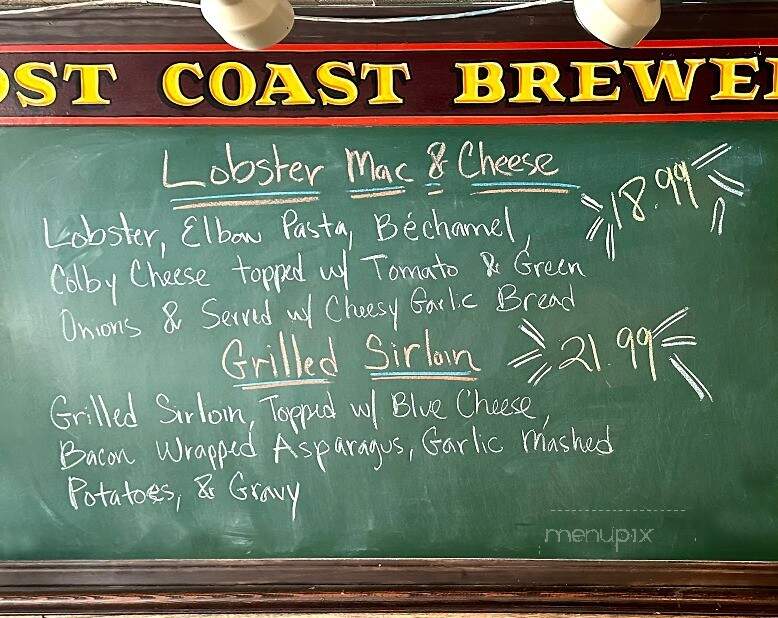 OST COAST BREWE
Lobster Mac & Cheese
18.99
Lobster, Elbow Pasta, Béchamel,
Colby Cheese topped w/ Tomato & Green
Onions & Served w/ Cheesy Garlic Bread
Grilled Sirloin
21.99
Grilled Sirloin, Topped w/ Blue Cheese,
Bacon Wrapped Asparagus, Garlic Mashed
Potatoes, & Gravy
menupix